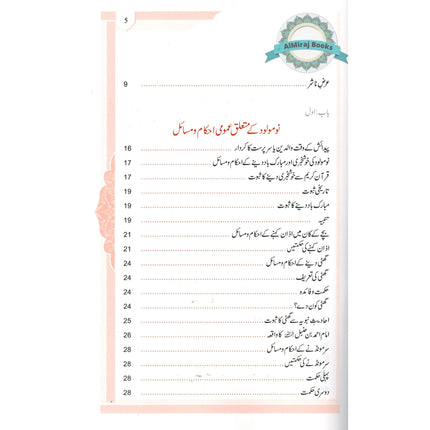 5
AlMiraj Books
عرضِ ناشر 9
باب: اول
نومولود کے متعلق عمومی احکام و مسائل
پیدائش کے وقت والدین یا سرپرست کا کردار 16
نومولود کی خوشخبری اور مبارک باد دینے کے احکام و مسائل 17
قرآن کریم سے خوشخبری دینے کا ثبوت 17
تاریخی ثبوت 19
مبارک باد دینے کا ثبوت 19
تنبیہ 19
بچے کے کان میں اذان کہنے کے احکام و مسائل 21
اذان کہنے کی حکمتیں 21
گھٹی دینے کے احکام و مسائل 24
گھٹی کی تعریف 24
حکمت و فائدہ 24
گھٹی کون دے؟ 24
احادیثِ نبویہ سے گھٹی کا ثبوت 25
امام احمد بن حنبل کا واقعہ 26
سر مونڈنے کے احکام و مسائل 28
سر مونڈنے کی حکمتیں 28
پہلی حکمت 28
دوسری حکمت 28